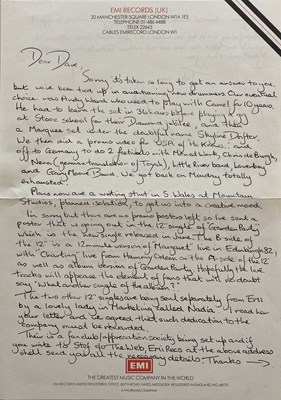 EMI RECORDS (UK)
20 MANCHESTER SQUARE LONDON W1A 1ES
TELEPHONE 01-486 4488
TELEX 22643
CABLES EMIRECORD LONDON W1
Dear Dave,
Sorry it's taken so long to get an answer to you
but we've been tied up in auditioning new drummers. Our eventual
choice was Andy Ward who used to play with Camel for 10 years.
He had to learn the set in 36 hours before playing a gig
at Stowe school for their Diamond Jubilee, and then
a Marquee set under the doubtful name Skyline Drifter.
We then did a promo video for USA of He Knows and
off to Germany to do 2 festivals with Michael Wints, Chris de Burgh,
Nena (german translation of Toyah), Little River band, Loverboy
and Gary Moore Band. We got back on Monday totally
exhausted!
Plans now are a writing stint in S. Wales at Mountain
Studios, planned isolation, to get us into a creative mood,
I'm sorry but there are no promo posters left so I've sent
a poster that is going out in the 12" single of Garden Party
which is the new single released in June. The B side of
the 12" is a 12 minute version of 'Margaret' live in Edinburgh 82,
with 'Charting' live from Hammy Odeon on the A side of the 12"
as well as album version of Garden Party. Hopefully the live
tracks will appease the element of fans that will no doubt
say 'What another single off the album?'
The two other 12" singles are being sent separately from EMI
by a lovely lady in Marketing called Nadia. I read her
your letter and we agreed that such dedication to the
company must be rewarded.
There is a fan club/appreciation society being set up and if
you write to Stef do The Web, Emi Recs at the above address
she'll send you all the necessary details. Thanks →
EMI
THE GREATEST MUSIC COMPANY IN THE WORLD